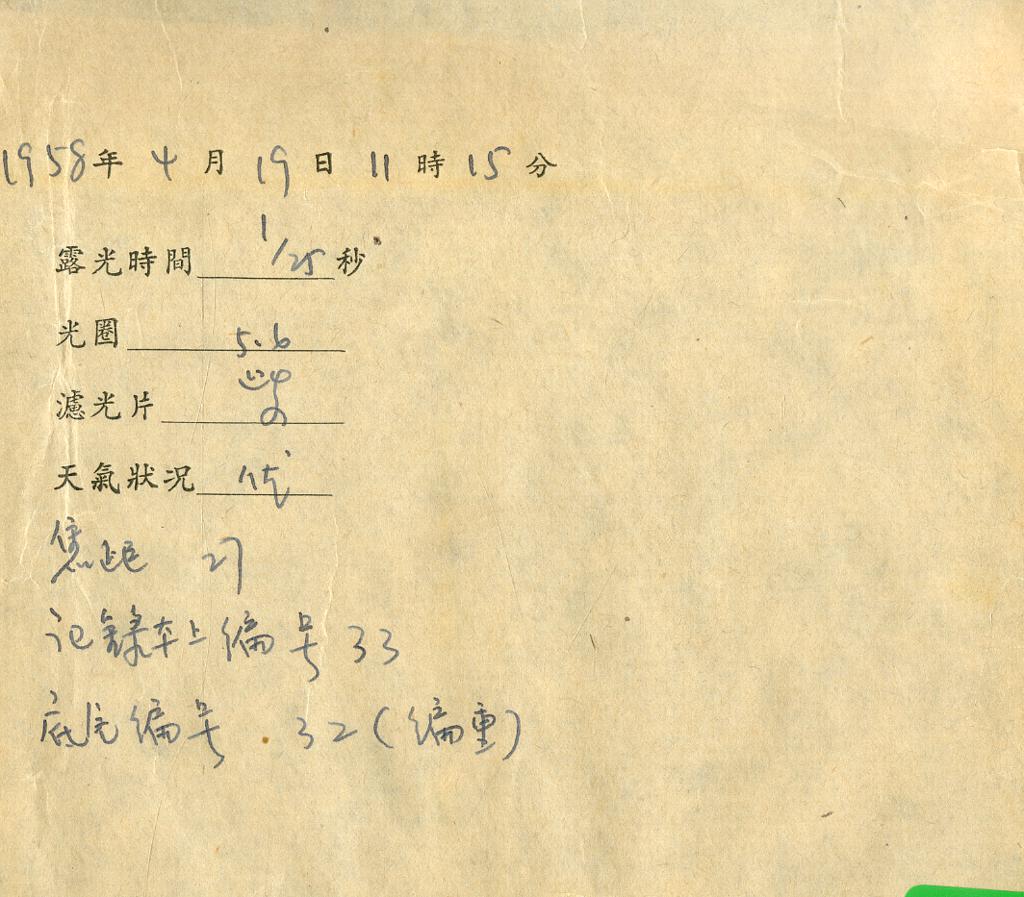 1958年 4 月 19 日 11 時 15 分
露光時間 1/25 秒
光圈 5.6
濾光片
天氣狀况
焦距 27
记錄本上编号 33
底片编号 32（编重）